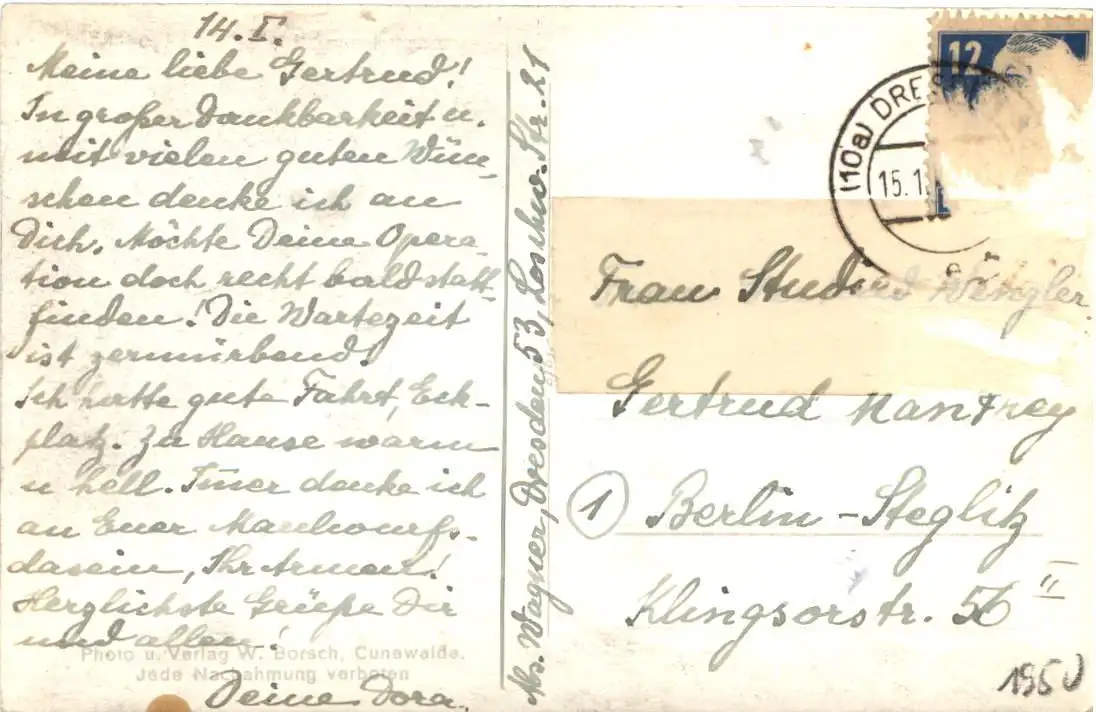 14. I.
Meine liebe Gertrud!
In großer Dankbarkeit u.
mit vielen guten Wün-
schen denke ich an
Dich. Möchte Deine Opera-
tion doch recht bald statt-
finden! Die Wartezeit
ist zermürbend.
Ich hatte gute Fahrt, Eck-
platz. Zu Hause warm
u hell. Imer denke ich
an Euer Maulwurfs-
dasein, Ihr Armen!
Herzlichste Grüße Dir
und allen!
Deine Dora.
Photo u. Verlag W. Borsch, Cunewalde.
Jede Nachahmung verboten
Abs. Wagner, Dresden 53, Loschw. Str. 21
12
(10a) DRES
15.1
Frau Studienrd
Gertrud Manfrey
1 Berlin-Steglitz
Klingsorstr. 56 II
1950